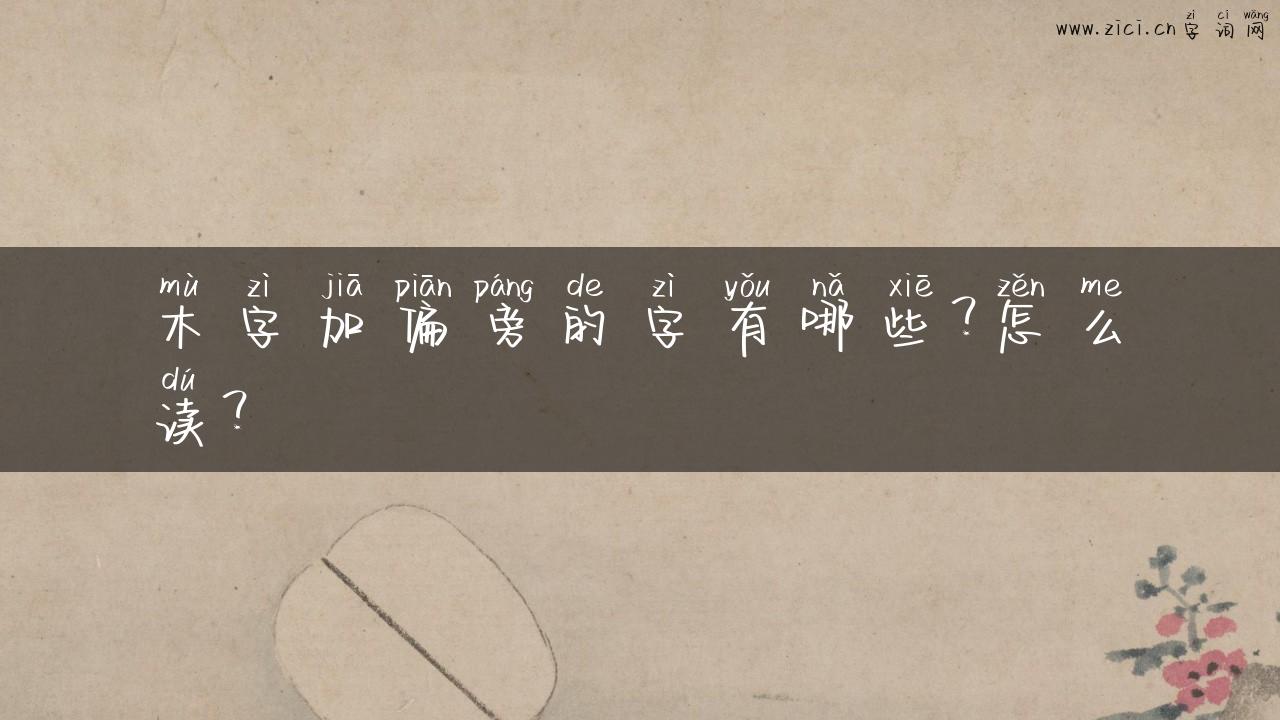 zì cí wǎng
www.zici.cn 字词网
mù zì jiā piān páng de zì yǒu nǎ xiē zěn me
木字加偏旁的字有哪些？怎么
dú
读？